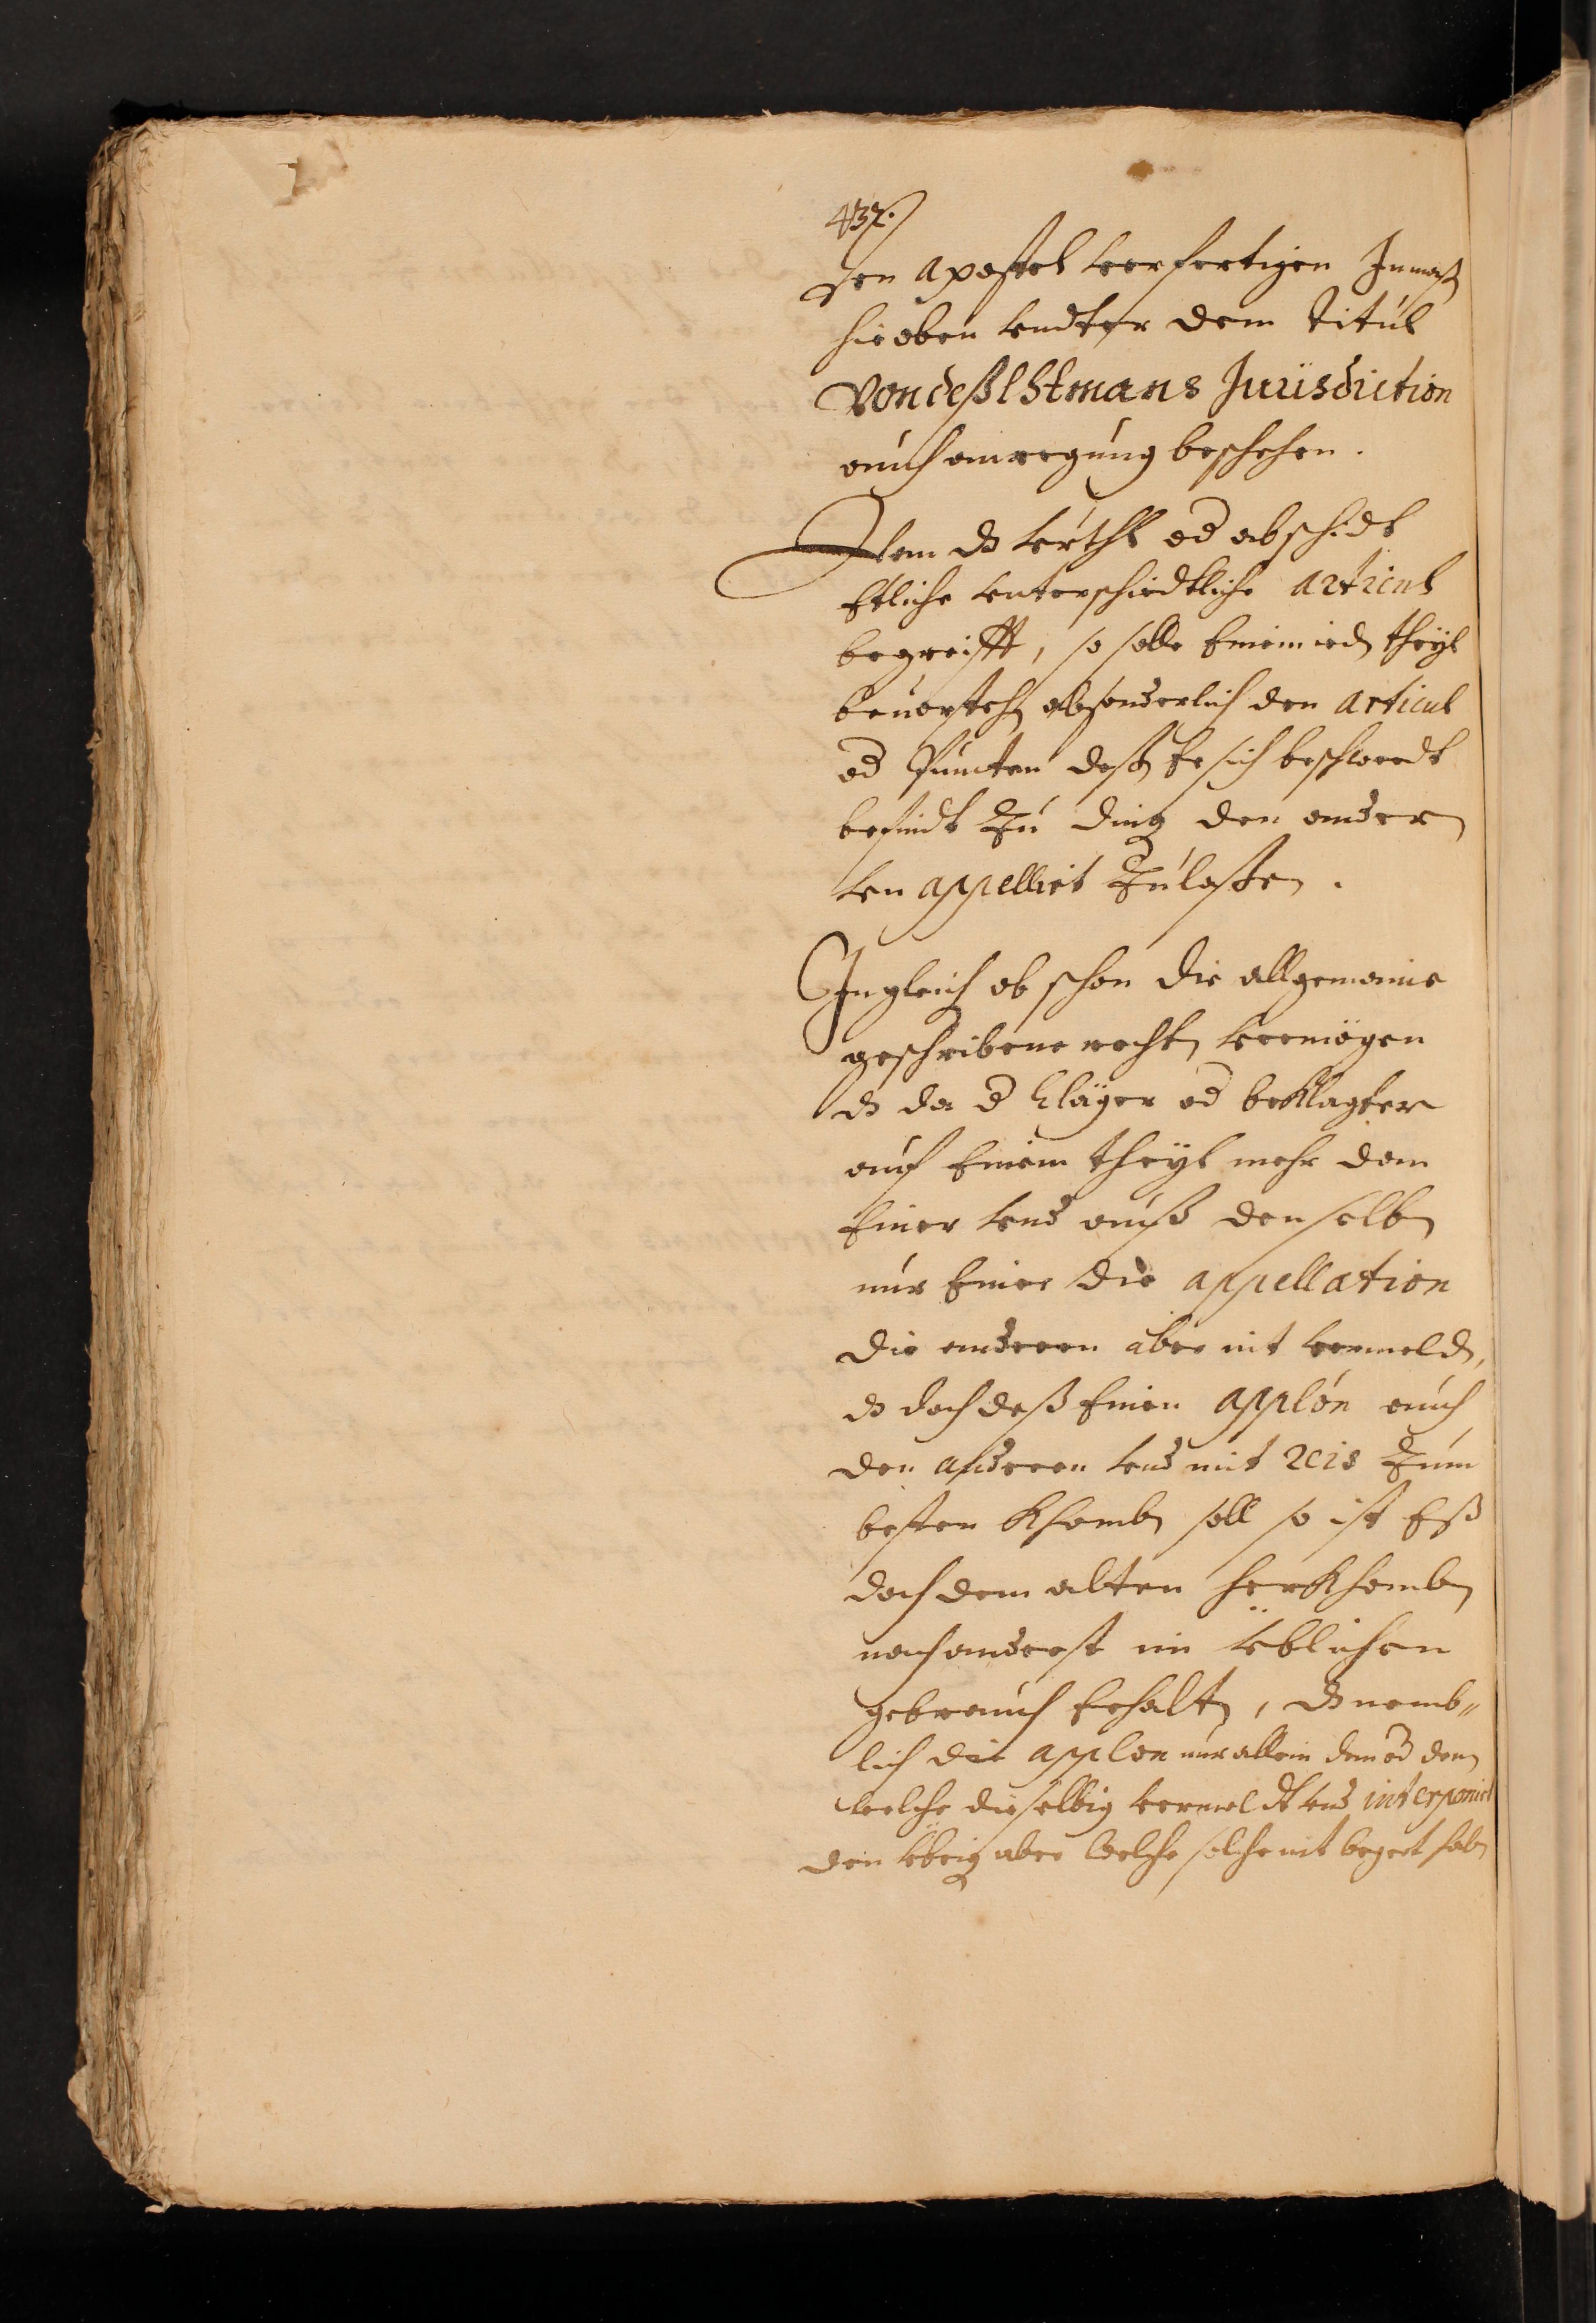 432.
den apostel verfertigen Inmaß
hieoben vndter dem titul
Von deß Lstmans Jurisdiction
auch anregung beschehen.
Item ds vrthl od abschidt
Etliche vnterschiedtliche articul
begreifft, so solle Einem ied theyl
beuorsteh absonderlich den articul
od Puncten deß Er sich beschwerdt
befindt Zu ding den ander
vnappelliert Zulaßen.
Ingleich ob schon die allgemeine
geschribene recht vermögen
ds da d kläger od beklagter
auf Einem theyl mehr dem
Einer vnd auß denselb
nur Einer die appellation
die anderen aber nit vermeld,
ds doch deß Einen applon auch
den anderen vnd mit reis Zum
besten khomb soll so ist Eß
doch dem alten herkhomb
noch anderst im üblichen
gebrauch Erhalt, ds nemb„
lich die applon nur allein dem od den
welche dieselbig vermeldt vnd interponiert
den übrig aber welche solche nit begert hab